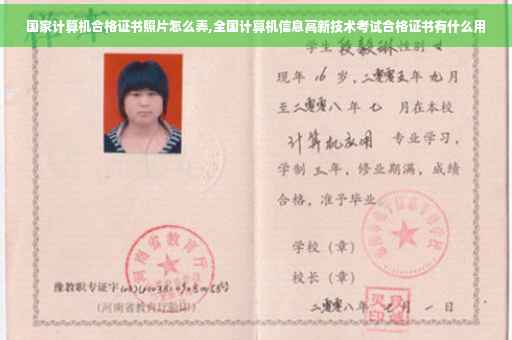 国家计算机合格证书照片怎么弄,全国计算机信息高新技术考试合格证书有什么用
学生段毅琳性别女
现年16岁,二零零五年九月
至二零零八年七月在本校
计算机应用专业学习,
学制三年,修业期满,成绩
合格,准予毕业
学校(章)
校长(章)
二零零八年七月一日
河南省教育厅
豫教职专证字
(河南省教育厅验印)